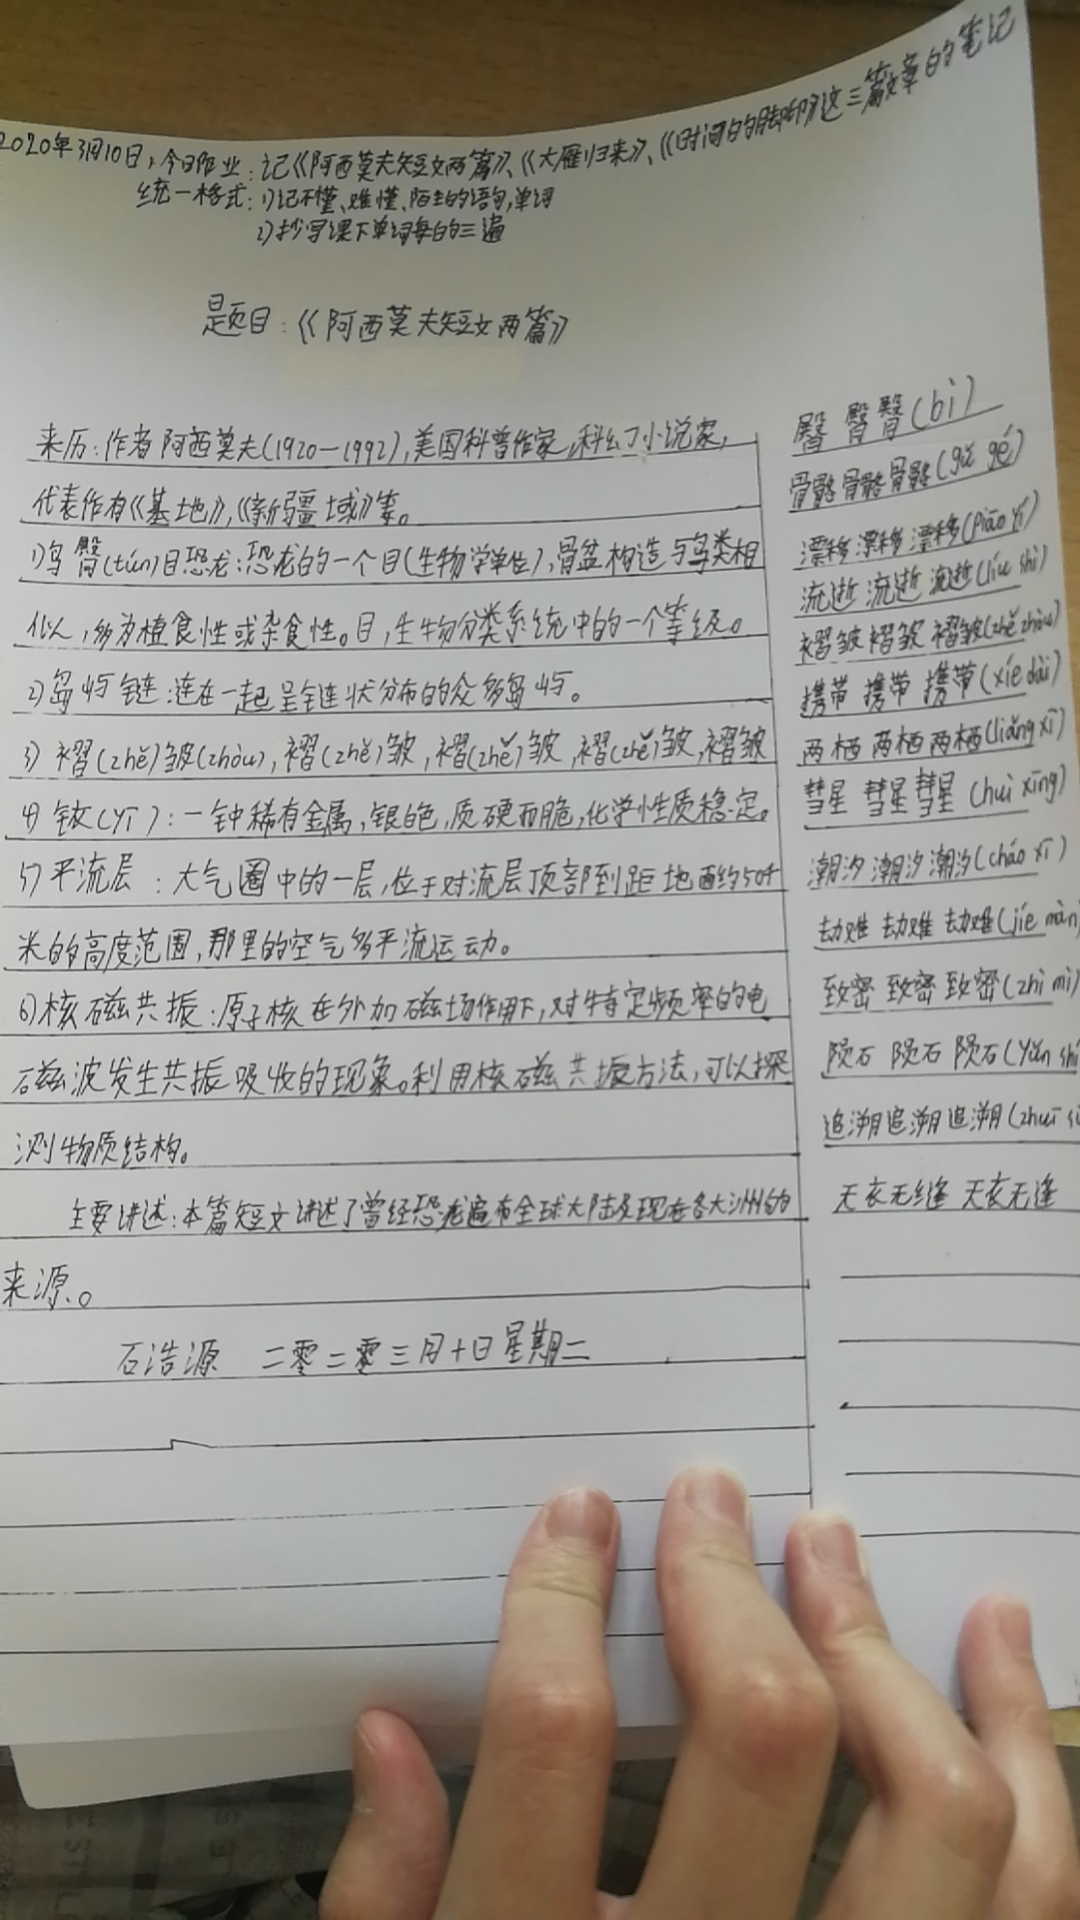 2020年3月10日,今日作业:记《阿西莫夫短文两篇》、《大雁归来》、《时间的脚印》这三篇文章的笔记
统一格式:1)记不懂、难懂、陌生的语句,单词
2)抄写课下单词每的三遍
题目:《阿西莫夫短文两篇》
来历:作者阿西莫夫(1920—1992),美国科普作家,科幻小说家,
代表作有《基地》,《新疆域》等。
1)鸟臀(tún)目恐龙:恐龙的一个目(生物学单位),骨盆构造与鸟类相
似,多为植食性或杂食性。目,生物分类系统中的一个等级。
2)岛屿链:连在一起呈链状分布的众多岛屿。
3)褶(zhě)皱(zhòu),褶(zhě)皱,褶(zhě)皱,褶(zhě)皱,褶皱
4)铱(yī):一钟稀有金属,银白色,质硬而脆,化学性质稳定。
5)平流层:大气圈中的一层,位于对流层顶部到距地面约50千
米的高度范围,那里的空气多平流运动。
6)核磁共振:原子核在外加磁场作用下,对特定频率的电
磁波发生共振吸收的现象。利用核磁共振方法,可以探
测物质结构。
主要讲述:本篇短文讲述了曾经恐龙遍布全球大陆及现在各大洲的
来源。
石浩源 二零二零三月十日星期二
臀 臀 臀(bì)
骨骼骨骼骨骼(gǔ gé)
漂移漂移漂移(piāo yí)
流逝 流逝 流逝(liú shì)
褶皱 褶皱 褶皱(zhě zhòu)
携带 携带 携带(xié dài)
两栖 两栖 两栖(liǎng xī)
彗星 彗星 彗星(huì xīng)
潮汐 潮汐 潮汐(cháo xī)
劫难 劫难 劫难(jíe nàn)
致密 致密 致密(zhì mì)
陨石 陨石 陨石(yǔn shí
追溯追溯追溯(zhuī sù
天衣无缝 天衣无逢